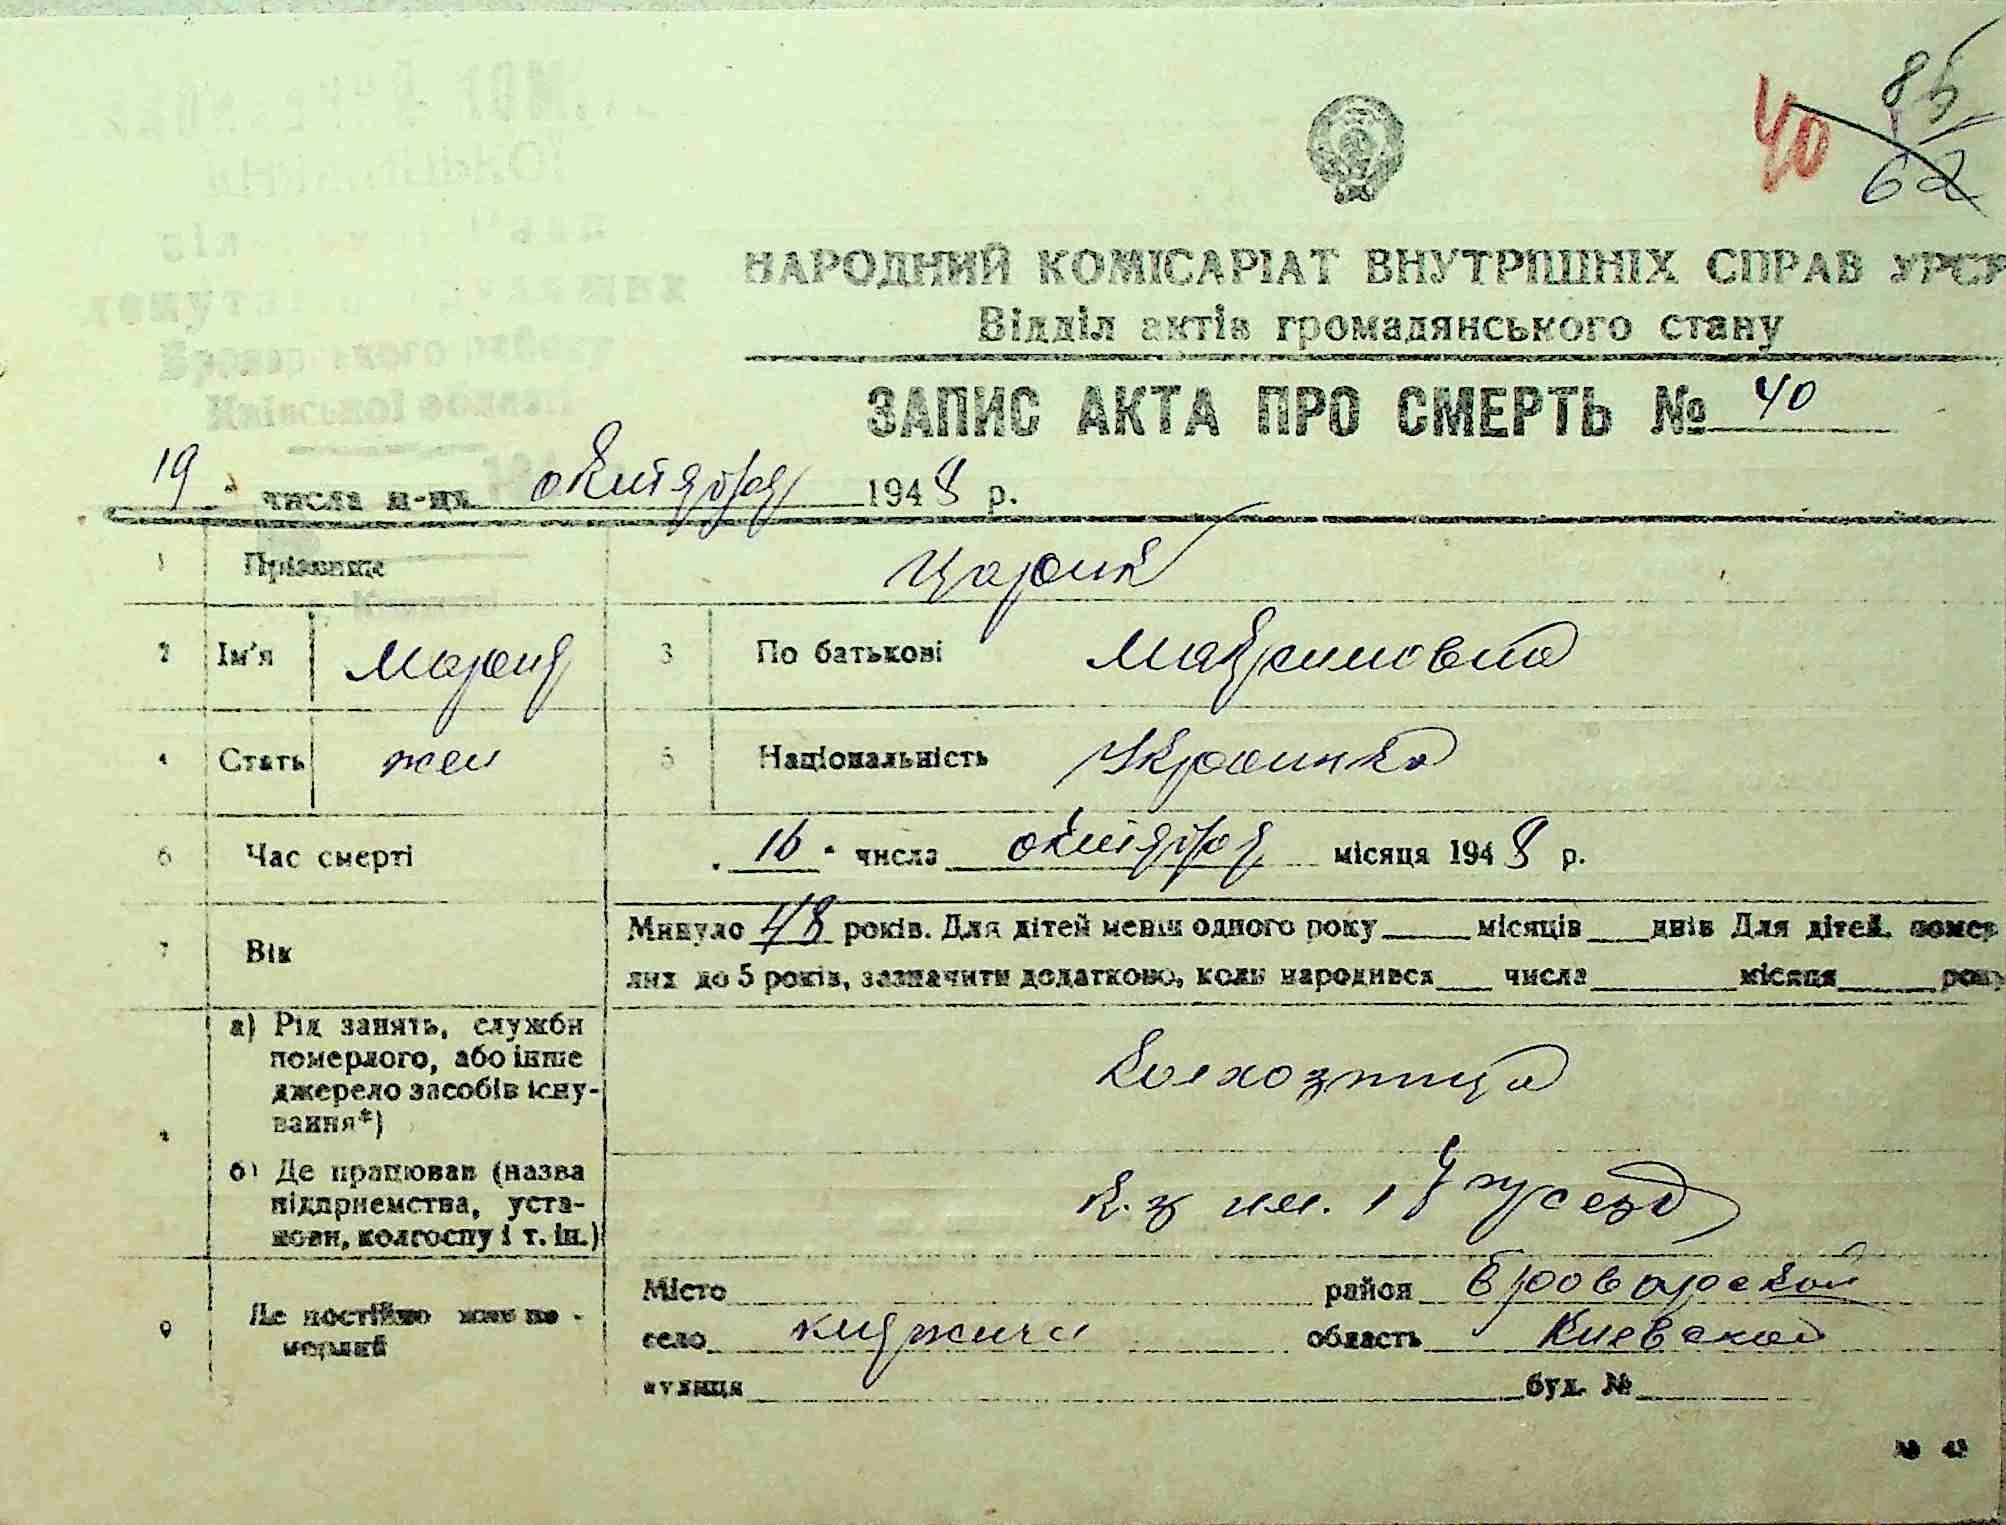 40 85
62
НАРОДНИЙ КОМІСАРІАТ ВНУТРІШНІХ СПРАВ УРСР
Відділ актів громадянського стану
ЗАПИС АКТА ПРО СМЕРТЬ № 40
19 " числа м-ця октября 1948 р.
1 Прізвище Царик
2 Ім'я Мария 3 По батькові Максимовна
4 Стать жен 5 Національність Украинка
6 Час смерті „ 16 " числа октября місяця 1948 р.
7 Вік Минуло 48 років. Для дітей менш одного року місяців днів Для дітей, помер
лих до 5 років, зазначити додатково, коли народився числа місяця року
а) Рід занять, служби
померлого, або інше
джерело засобів існу-
вання*)
Колхозница
б) Де працював (назва
підприємства, уста-
нови, колгоспу і т. ін.)
к.з им. 18 съезд
9 Де постійно жив по-
мерлий
Місто район Броварской
село Княжичи область Киевской
вулиця буд. №